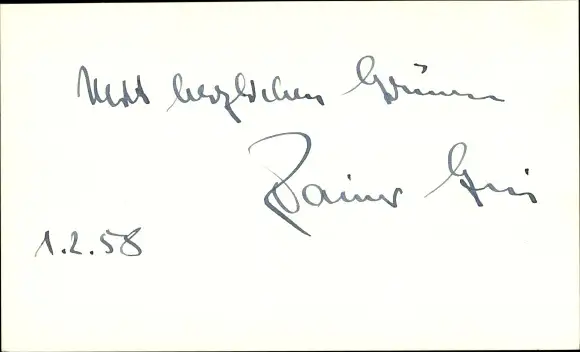 Mit herzlichen Grüssen
Rainer
1.2.58